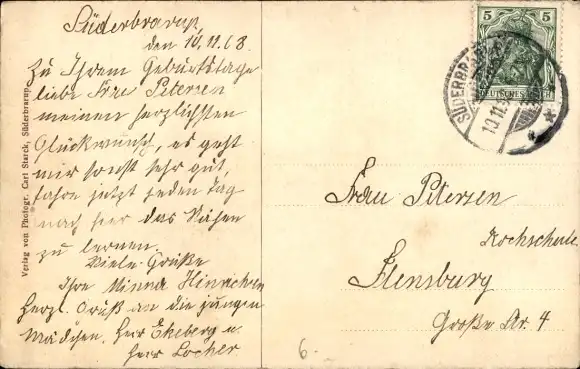 Süderbrarup,
den 10.11.08.
Zu Ihrem Geburtstage
liebe Frau Petersen
meinen herzlichsten
Glückwunsch, es geht
mir sonst sehr gut,
fahre jetzt jeden Tag
nach hier das Nähen
zu lernen.
Viele Grüße
Ihre Minna Hinrichsen
Herzl. Gruß an die jungen
Mädchen. Herr Ekeberg u.
Herr Locher
Verlag von Photogr. Carl Starck, Süderbrarup.
5 5
DEUTSCHES REICH
SÜDERBRARUP
10.11.
Frau Petersen
Kochschule
Flensburg
Große Str. 4
6.